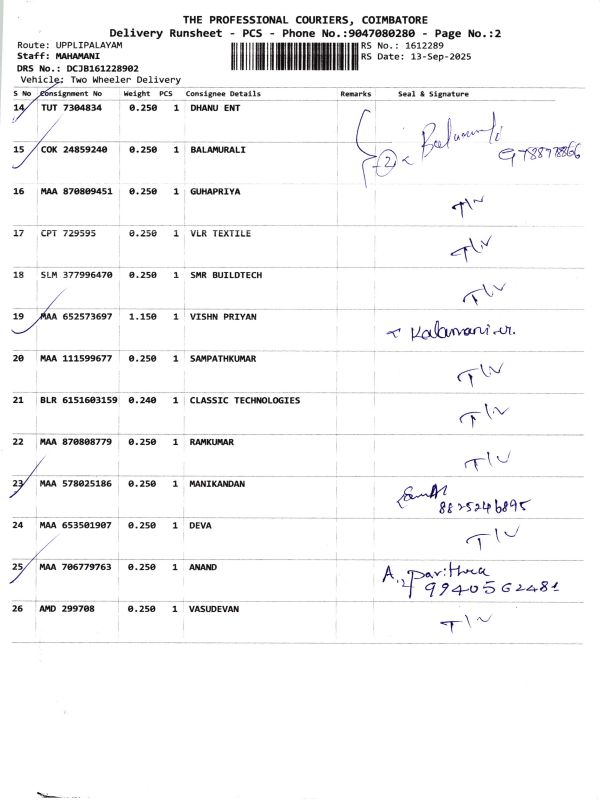 THE PROFESSIONAL COURIERS, COIMBATORE
Delivery Runsheet - PCS - Phone No.:9047080280 - Page No.:2
Route: UPPLIPALAYAM RS No.: 1612289
Staff: MAHAMANI RS Date: 13-Sep-2025
DRS No.: DCJB161228902
Vehicle: Two Wheeler Delivery
S No Consignment No Weight PCS Consignee Details Remarks Seal & Signature
14 TUT 7304834 0.250 1 DHANU ENT
15 COK 24859240 0.250 1 BALAMURALI 2 Balamurali
16 MAA 870809451 0.250 1 GUHAPRIYA T/N
17 CPT 729595 0.250 1 VLR TEXTILE T/N
18 SLM 377996470 0.250 1 SMR BUILDTECH T/N
19 MAA 652573697 1.150 1 VISHN PRIYAN Kalamani
20 MAA 111599677 0.250 1 SAMPATHKUMAR T/N
21 BLR 6151603159 0.240 1 CLASSIC TECHNOLOGIES T/N
22 MAA 870808779 0.250 1 RAMKUMAR T/N
23 MAA 578025186 0.250 1 MANIKANDAN
8825246895
24 MAA 653501907 0.250 1 DEVA T/N
25 MAA 706779763 0.250 1 ANAND A.
9940562481
26 AMD 299708 0.250 1 VASUDEVAN T/N